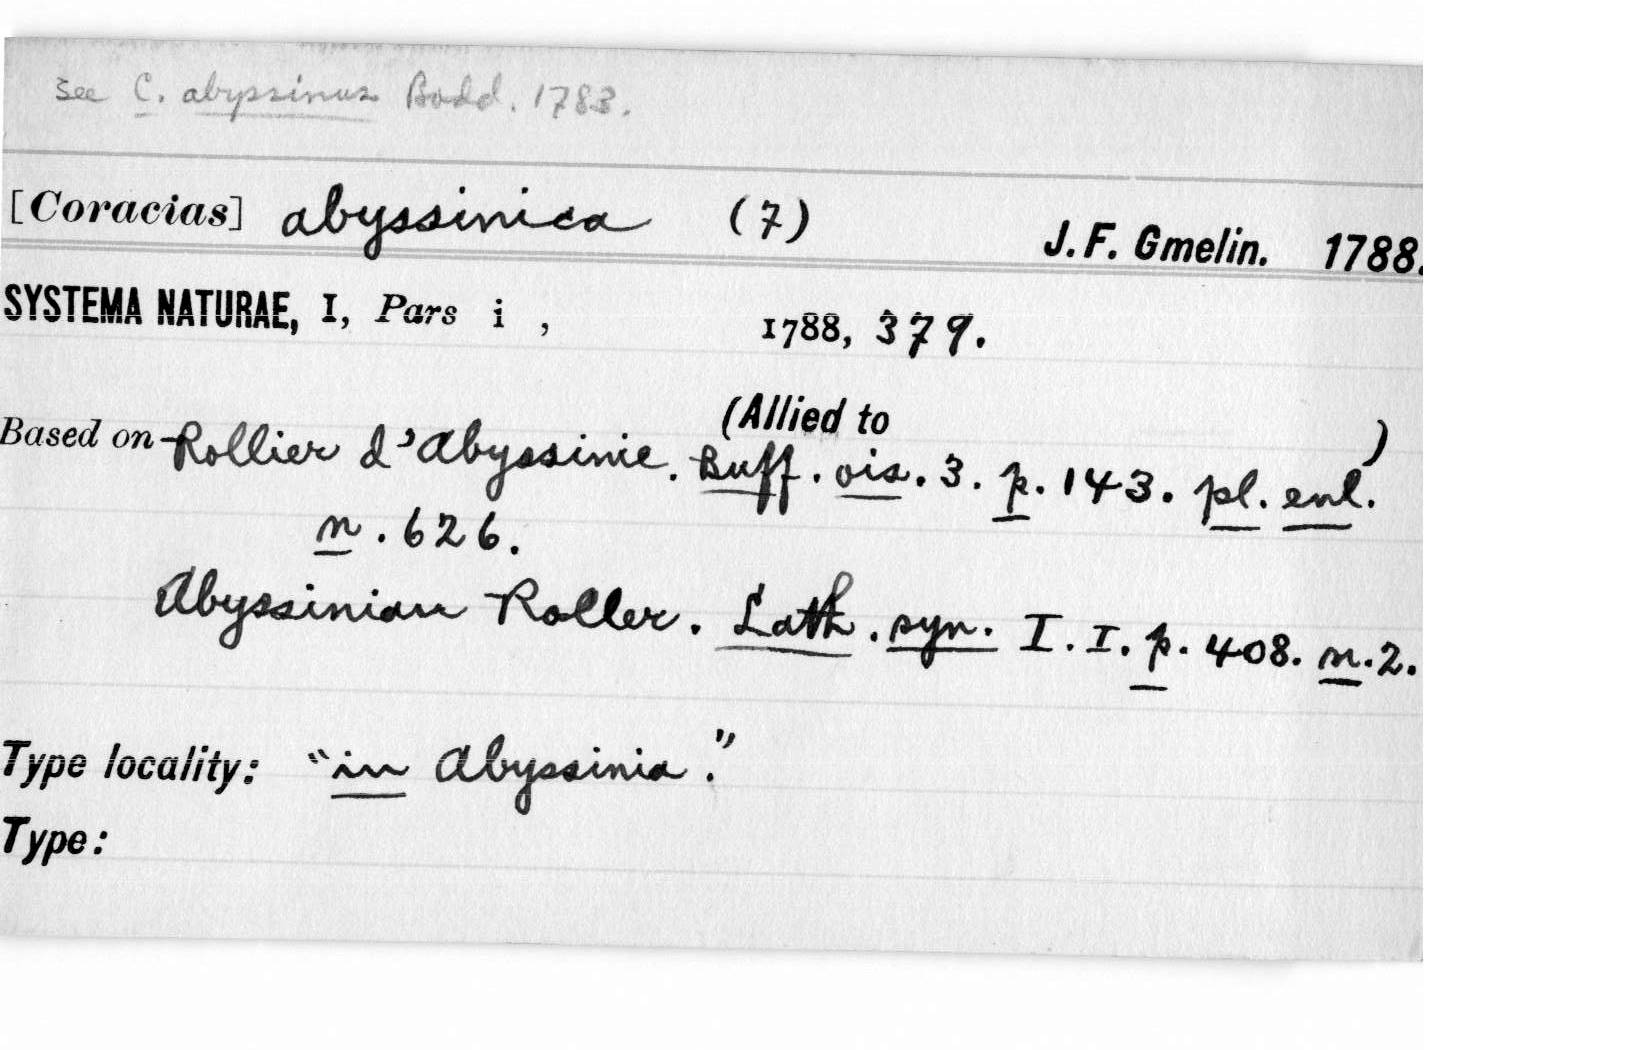 see C. abyssinus Bodd. 1783.
[Coracias] abyssinica (7) J. F. Gmelin. 1788.
SYSTEMA NATURAE, I, Pars i , 1788, 379.
(Allied to )
Based on Rollier d'Abyssinie. Buff. ois. 3. p. 143. pl. enl.
n. 626.
Abyssinian Roller. Lath. syn. I. I. p. 408. n. 2.
Type locality: "in Abyssinia."
Type: